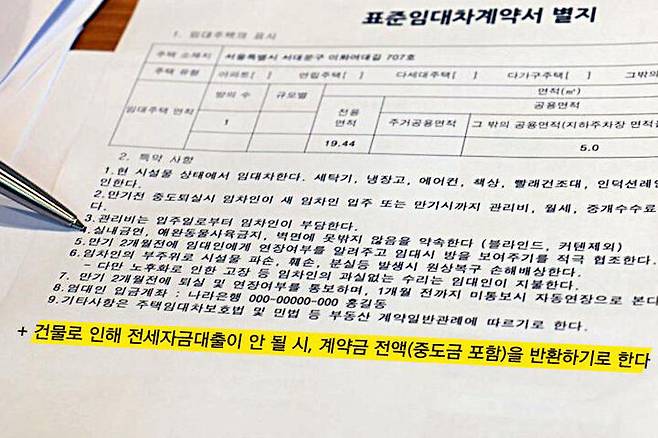 표준임대차계약서 별지
1. 임대주택의 표시
주택 소재지 서울특별시 서대문구 이화여대길 707호
주택 유형 아파트[ ] 연립주택[ ] 다세대주택[ ] 다가구주택[ ] 그밖의
임대주택 면적 방의 수 규모별 면적(㎡)
전용면적 공용면적
주거공용면적 그 밖의 공용면적(지하주차장 면적을
1 19.44 5.0
2. 특약 사항
1.현 시설물 상태에서 임대차한다. 세탁기, 냉장고, 에어컨, 책상, 빨래건조대, 인덕션레인
인한다.
2.만기전 중도퇴실시 임차인이 새 임차인 입주 또는 만기시까지 관리비, 월세, 중개수수료
다.
3.관리비는 입주일로부터 임차인이 부담한다.
4.실내금연, 애완동물사육금지, 벽면에 못박지 않음을 약속한다 (블라인드, 커텐제외)
5.만기 2개월전에 임대인에게 연장여부를 알려주고 임대시 방을 보여주기를 적극 협조한다.
6.임차인의 부주위로 시설물 파손, 훼손, 분실등 발생시 원상복구 손해배상한다.
- 다만 노후화로 인한 고장 등 임차인의 과실없는 수리는 임대인이 지불한다.
7. 만기 2개월전에 퇴실 및 연장여부를 통보하며, 1개월 전까지 미통보시 자동연장으로 본다
8.임대인 입금계좌 : 나라은행 000-00000-000 홍길동
9.기타사항은 주택임대차보호법 및 민법 등 부동산 계약일반관례에 따르기로 한다.
+ 건물로 인해 전세자금대출이 안 될 시, 계약금 전액(중도금 포함)을 반환하기로 한다